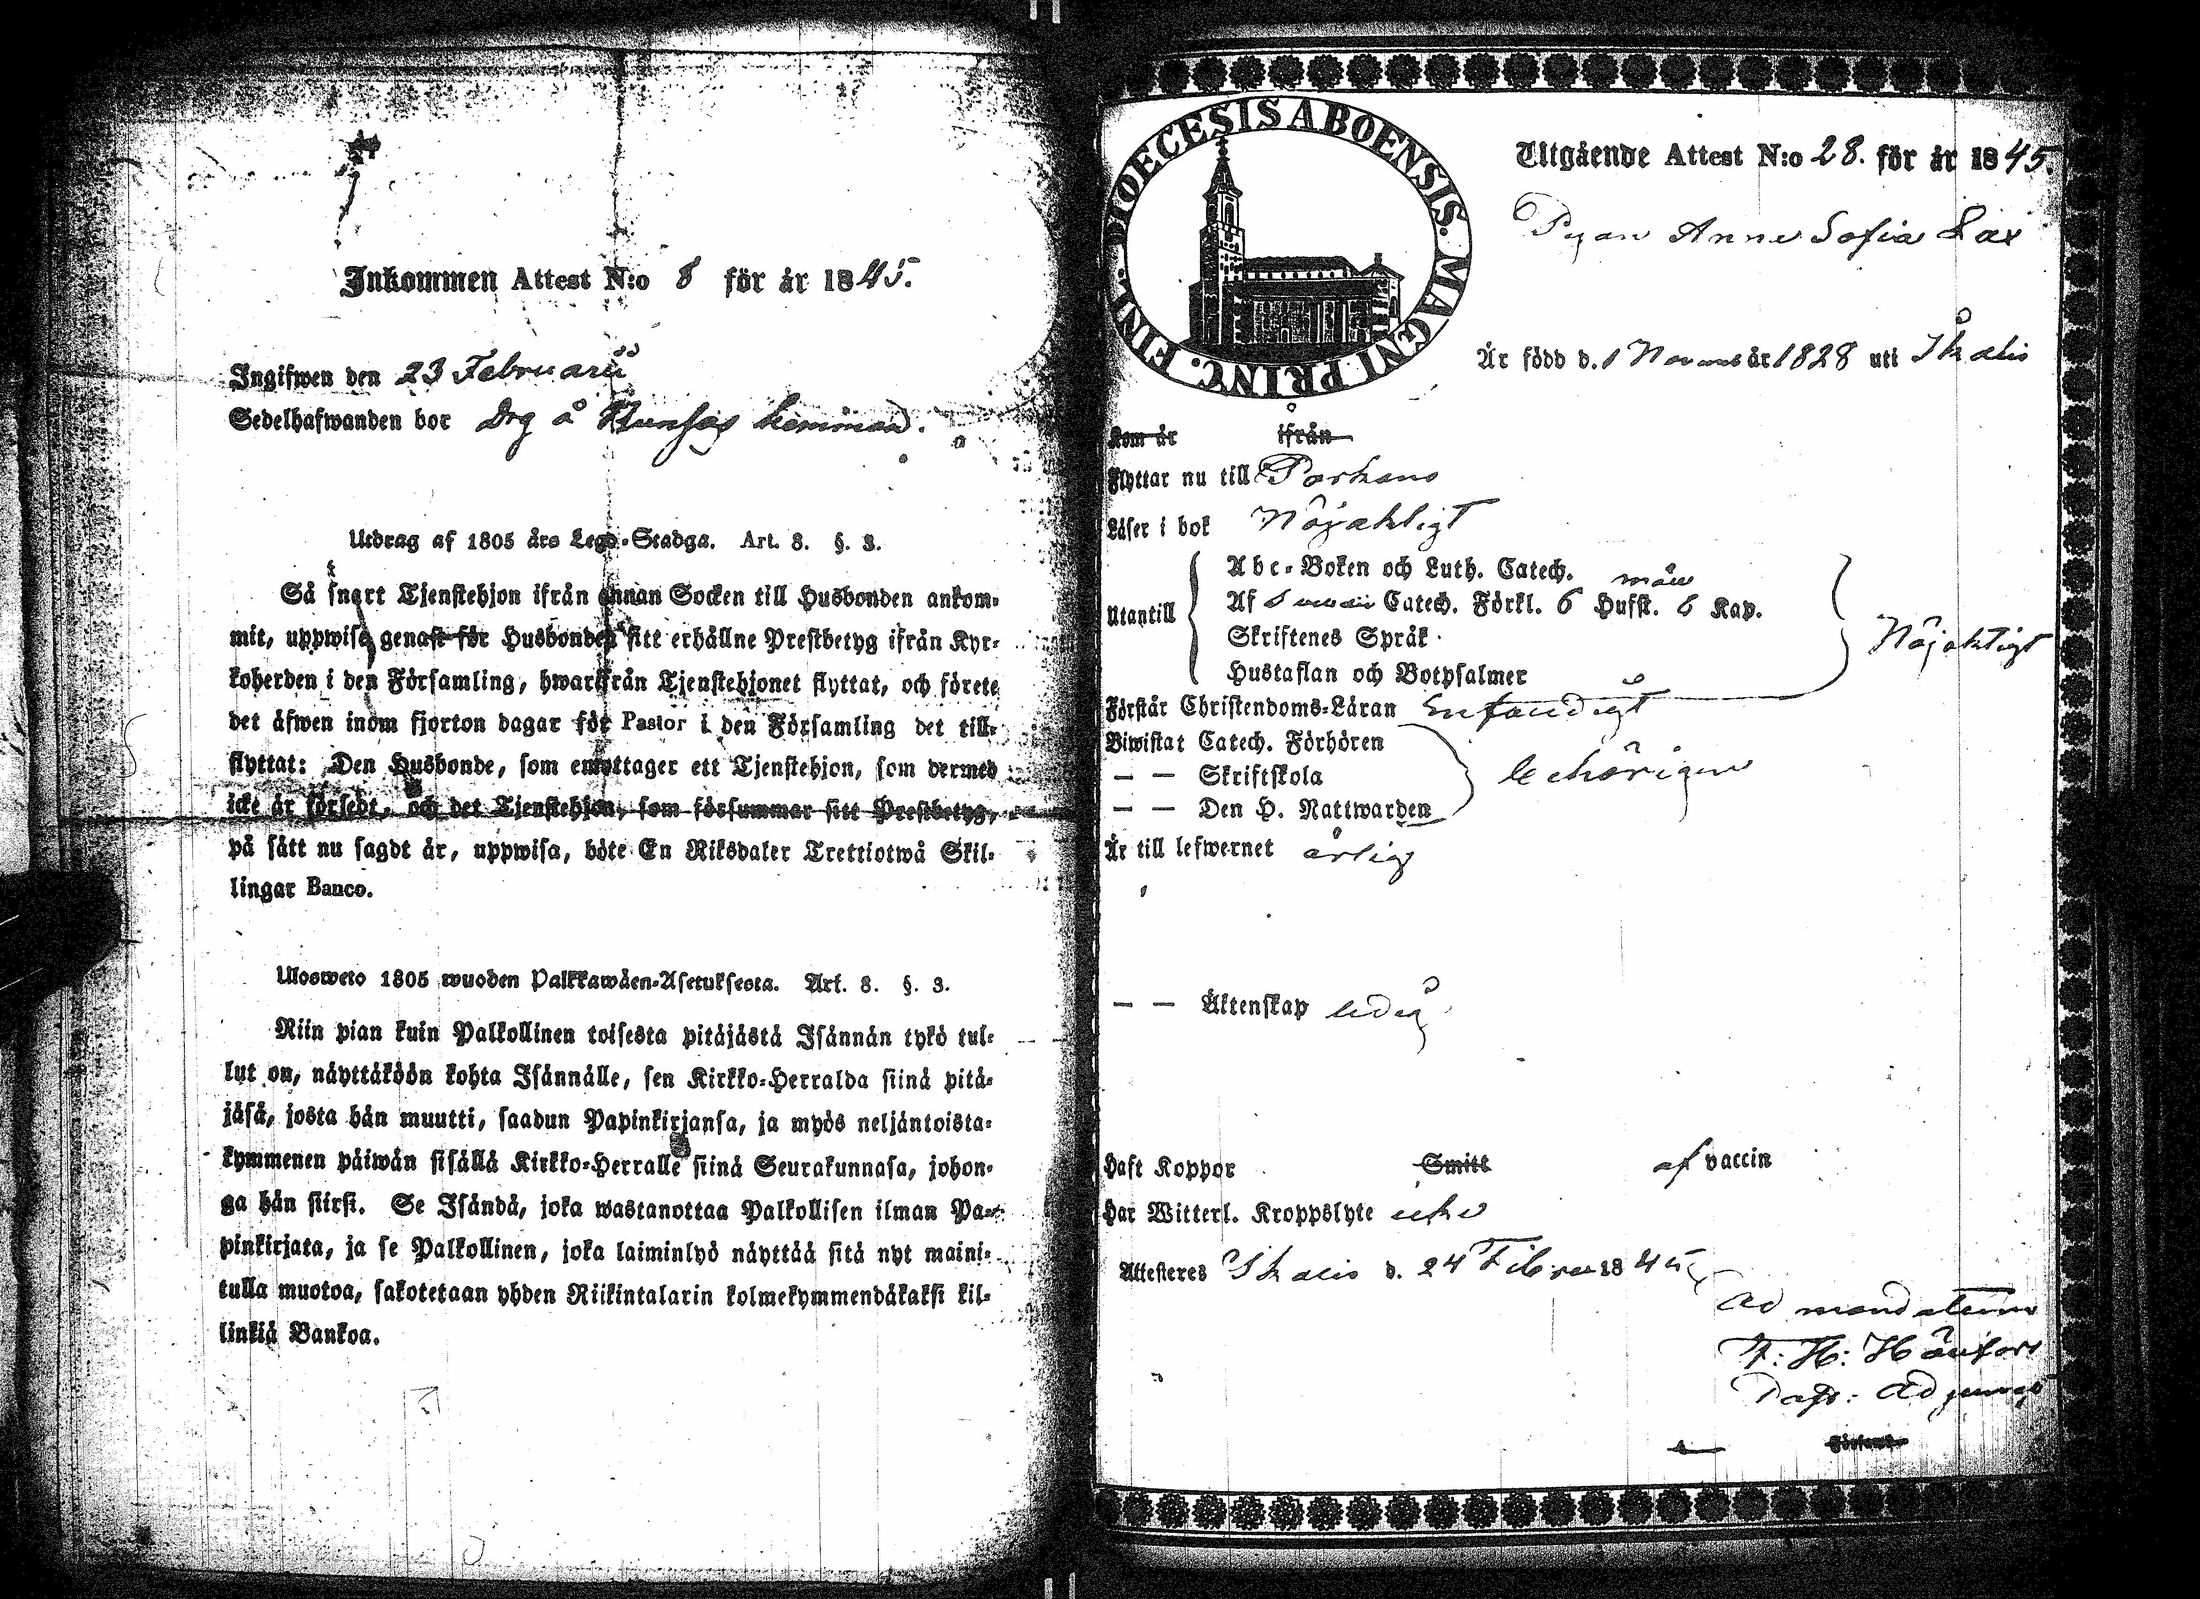 Inkommen Attest N:o 8 för år 1845.
Ingifwen den 23 Februarii
Sedelhafwanden bor Drg å hemman.
Utdrag af 1805 års Lego-Stadga. Art. 8. §. 3.
Så snart Tjenstehjon ifrån annan Socken till Husbonden ankom-
mit, uppwise genast för Husbonden sitt erhållne Prestbetyg ifrån Kyr-
koherden i den Församling, hwarifrån Tjenstehjonet flyttat, och förete
det äfwen inom fjorton dagar för Pastor i den Församling det till-
flyttat: Den Husbonde, som emottager ett Tjenstehjon, som dermed
icke är försedt, och det Tjenstehjon, som försummar sitt Prestbetyg,
på sätt nu sagdt är, uppwisa, böte En Riksdaler Trettiotwå Skil-
lingar Banco.
Ulosweto 1805 wuoden Palkkawäen-Asetuksesta. Art. 8. §. 3.
Niin pian kuin Palkollinen toisesta pitäjästä Isännän tykö tul-
lut on, näyttäköön kohta Isännälle, sen Kirkko-Herralda siinä pitä-
jäsä, josta hän muutti, saadun Papinkirjansa, ja myös neljäntoista-
kymmenen päiwän sisällä Kirkko-Herralle siinä Seurakunnasa, johon-
ga hän siirsi. Se Isändä, joka wastanottaa Palkollisen ilman Pa-
pinkirjata, ja se Palkollinen, joka laiminlyö näyttää sitä nyt maini-
tulla muotoa, sakotetaan yhden Riikintalarin kolmekymmendäkaksi kil-
linkiä Bankoa.
DIOECESIS ABOENSIS. MAGNI PRINC. FINL.
Utgående Attest N:o 28. för år 1845.
Pigan Anna Sofia Lax
Är född d. 1 November år 1828 uti Ikalis
Kom år ifrån
Flyttar nu till Parkano
Läser i bok Nöjaktigt
Utantill
Abc-Boken och Luth. Catech.
Af Catech. Förkl. 6 Hufst. 6 Kap.
Skriftenes Språk
Hustaflan och Botpsalmer
Nöjaktigt
Förstår Christendoms-Läran Enfaldigt
Biwistat Catech. Förhören
— — Skriftskola
— — Den H. Nattwarden
behörigen
Är till lefwernet ärlig
— — Äktenskap ledig
Haft Koppor Smitt af vaccin
Har Witterl. Kroppslyte icke
Attesteres Ikalis d. 24 Febru 1845
Ad mandatum
Past: Adjunct
Församl.